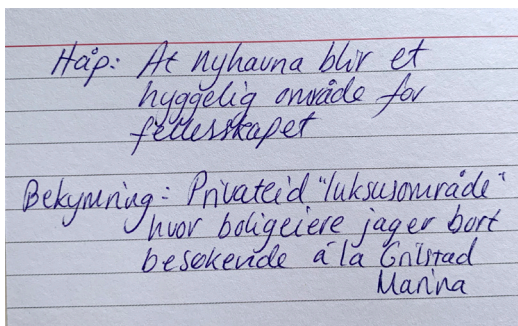 Håp: At nyhavna blir et
hyggelig område for
fellesskapet
Bekymring: Privateid "luksusområde"
hvor boligeiere jager bort
besøkende á la Grilstad
Marina